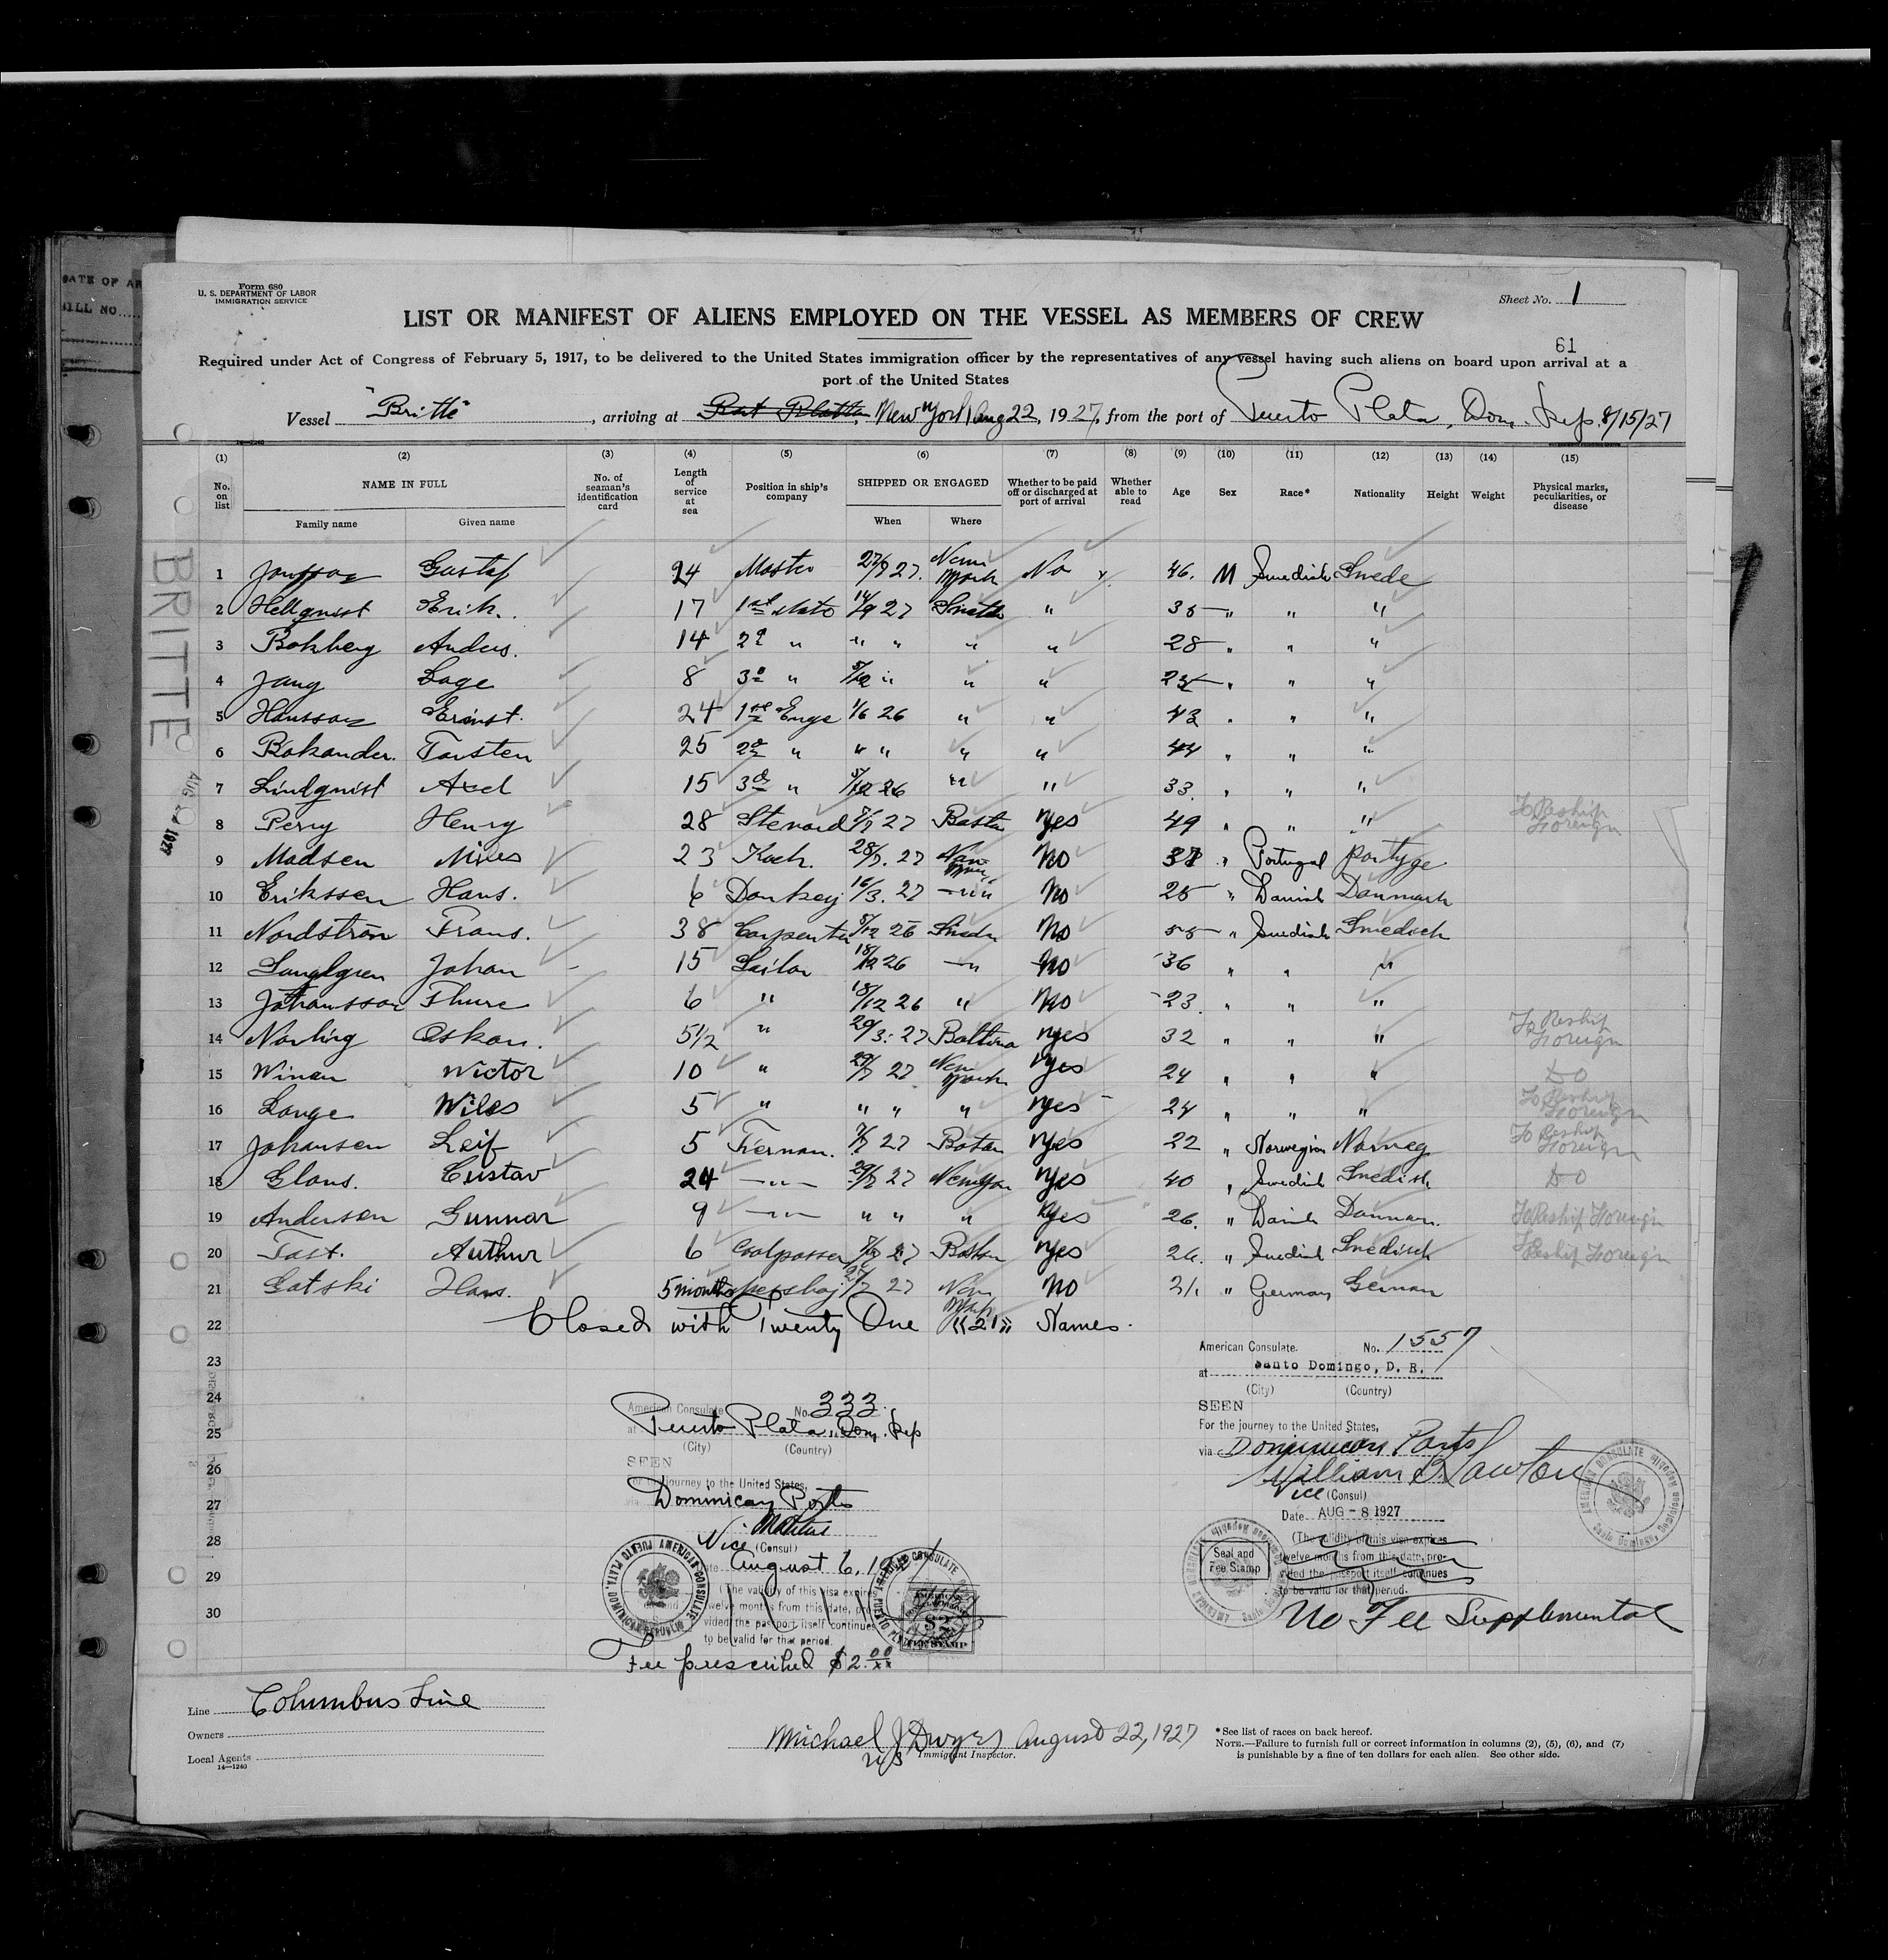 DATE OF AR
BILL NO
Form 680
U. S. DEPARTMENT OF LABOR
IMMIGRATION SERVICE
Sheet No. 1
LIST OR MANIFEST OF ALIENS EMPLOYED ON THE VESSEL AS MEMBERS OF CREW
61
Required under Act of Congress of February 5, 1917, to be delivered to the United States immigration officer by the representatives of any vessel having such aliens on board upon arrival at a
port of the United States
Vessel "Britte", arriving at New York Aug 22, 1927, from the port of Puerto Plata, Dom. Rep. 8/15/27
14—1240
(1) (2) (3) (4) (5) (6) (7) (8) (9) (10) (11) (12) (13) (14) (15)
No. on list NAME IN FULL Family name Given name No. of seaman's identification card Length of service at sea Position in ship's company SHIPPED OR ENGAGED When Where Whether to be paid off or discharged at port of arrival Whether able to read Age Sex Race* Nationality Height Weight Physical marks, peculiarities, or disease
BRITTE
1 Gustaf 24 27/7 27. New York No 46. M Swedish Swede
2 Hellqvist Erik. 17 1st 27 " " " "
3 Bokberg Anders. 14 2d " " " " " 28 " " "
4 Jang Lage 8 3d " " " " " " "
5 Hansson Ernst. 24 1st Enge 1/6 26 " " 43 " " "
6 Bokander. Torsten 25 2d " " " " " 44 " " "
7 Lindqvist Axel 15 3d " 26 " " 33 " " "
8 Perry Henry 28 Steward 27 Boston Yes 49 " " " To Reship Foreign
9 Madsen 23 Kock. 28/7. 27 No " Portugal
10 Erikssen Hans. 6 Donkey 16/3. 27 No 25 " Danish Danmark
11 Nordström Frans. 38 Carpenter 26 No 55 " Swedish Swedish
12 Johan 15 Sailor 18/12 26 No 36 " " "
13 Johansson Thure 6 " 18/12 26 " No 23. " " "
14 Norling Oskar. 5½ " 27 Yes 32 " " " To Reship Foreign
15 Winan Wictor 10 " 27 New York Yes 24 " " " DO
16 Lange 5 " " " " Yes 24 " " " To Reship Foreign
17 Johansen Leif 5 27 Yes 22 " Norwegian Norweg To Reship Foreign
18 Glans. Gustav 24 27 Yes 40 " Swedish Swedish DO
19 Andersen Gunnar 9 " " " Yes 26. " Danish To Reship Foreign
20 Arthur 6 Coalpasser 27 Boston Yes " Swedish Swedish To Reship Foreign
21 Gatski Hans. 5 months 27 New York No 21 " German German
22 Closed with Twenty One "21" Names.
23
24
25
26
27
28
29
30
American Consulate. No. 1557
at Santo Domingo, D. R.
(City) (Country)
SEEN
For the journey to the United States,
via Dominican Ports
William B. Lawton
Vice (Consul)
Date AUG - 8 1927
(The validity of this visa expires
twelve months from this date, pro-
vided the passport itself continues
to be valid for that period.
Seal and
Fee Stamp
No Fee Supplemental
American Consulate No. 333.
at Puerto Plata, Dom. Rep
(City) (Country)
SEEN
For the journey to the United States,
via Dominican Ports
Vice (Consul)
Date August 6, 1927
(The validity of this visa expires
twelve months from this date, pro-
vided the passport itself continues
to be valid for that period.
Fee prescribed $2.00
Line Columbus Line
Owners
Local Agents
14—1240
Michael J Dwyer August 22, 1927
Immigrant Inspector.
*See list of races on back hereof.
NOTE.—Failure to furnish full or correct information in columns (2), (5), (6), and (7)
is punishable by a fine of ten dollars for each alien. See other side.